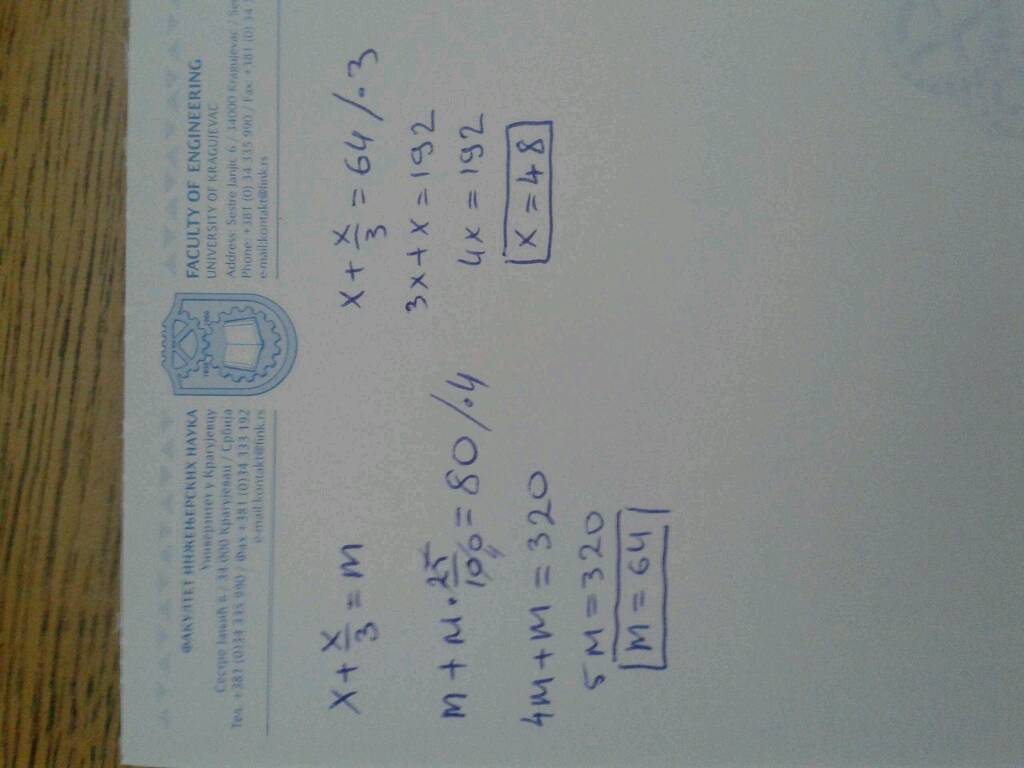 ФАКУЛТЕТ ИНЖЕЊЕРСКИХ НАУКА
Универзитет у Крагујевцу
Сестре Јањић 6 / 34 000 Крагујевац / Србија
Тел. +381 (0)34 335 990 / Факс +381 (0)34 333 192
e-mail:kontakt@fink.rs
FACULTY OF ENGINEERING
UNIVERSITY OF KRAGUJEVAC
Address: Sestre Janjic 6 / 34000 Kragujevac / Se
Phone: +381 (0) 34 335 990 / Fax: +381 (0) 34
e-mail:kontakt@fink.rs
x + x/3 = m
m + m · 25/100 = 80 / · 4
4m + m = 320
5m = 320
m = 64
x + x/3 = 64 / · 3
3x + x = 192
4x = 192
x = 48